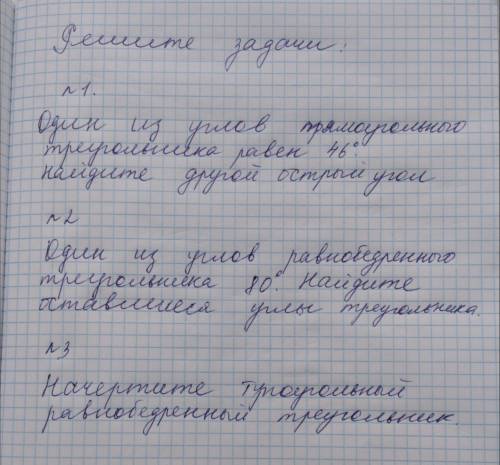 Решите задачи:
№1.
Один из углов прямоугольного
треугольника равен 46°.
Найдите другой острый угол
№2
Один из углов равнобедренного
треугольника 80°. Найдите
оставшиеся углы треугольника.
№3
Начертите тупоугольный
равнобедренный треугольник.